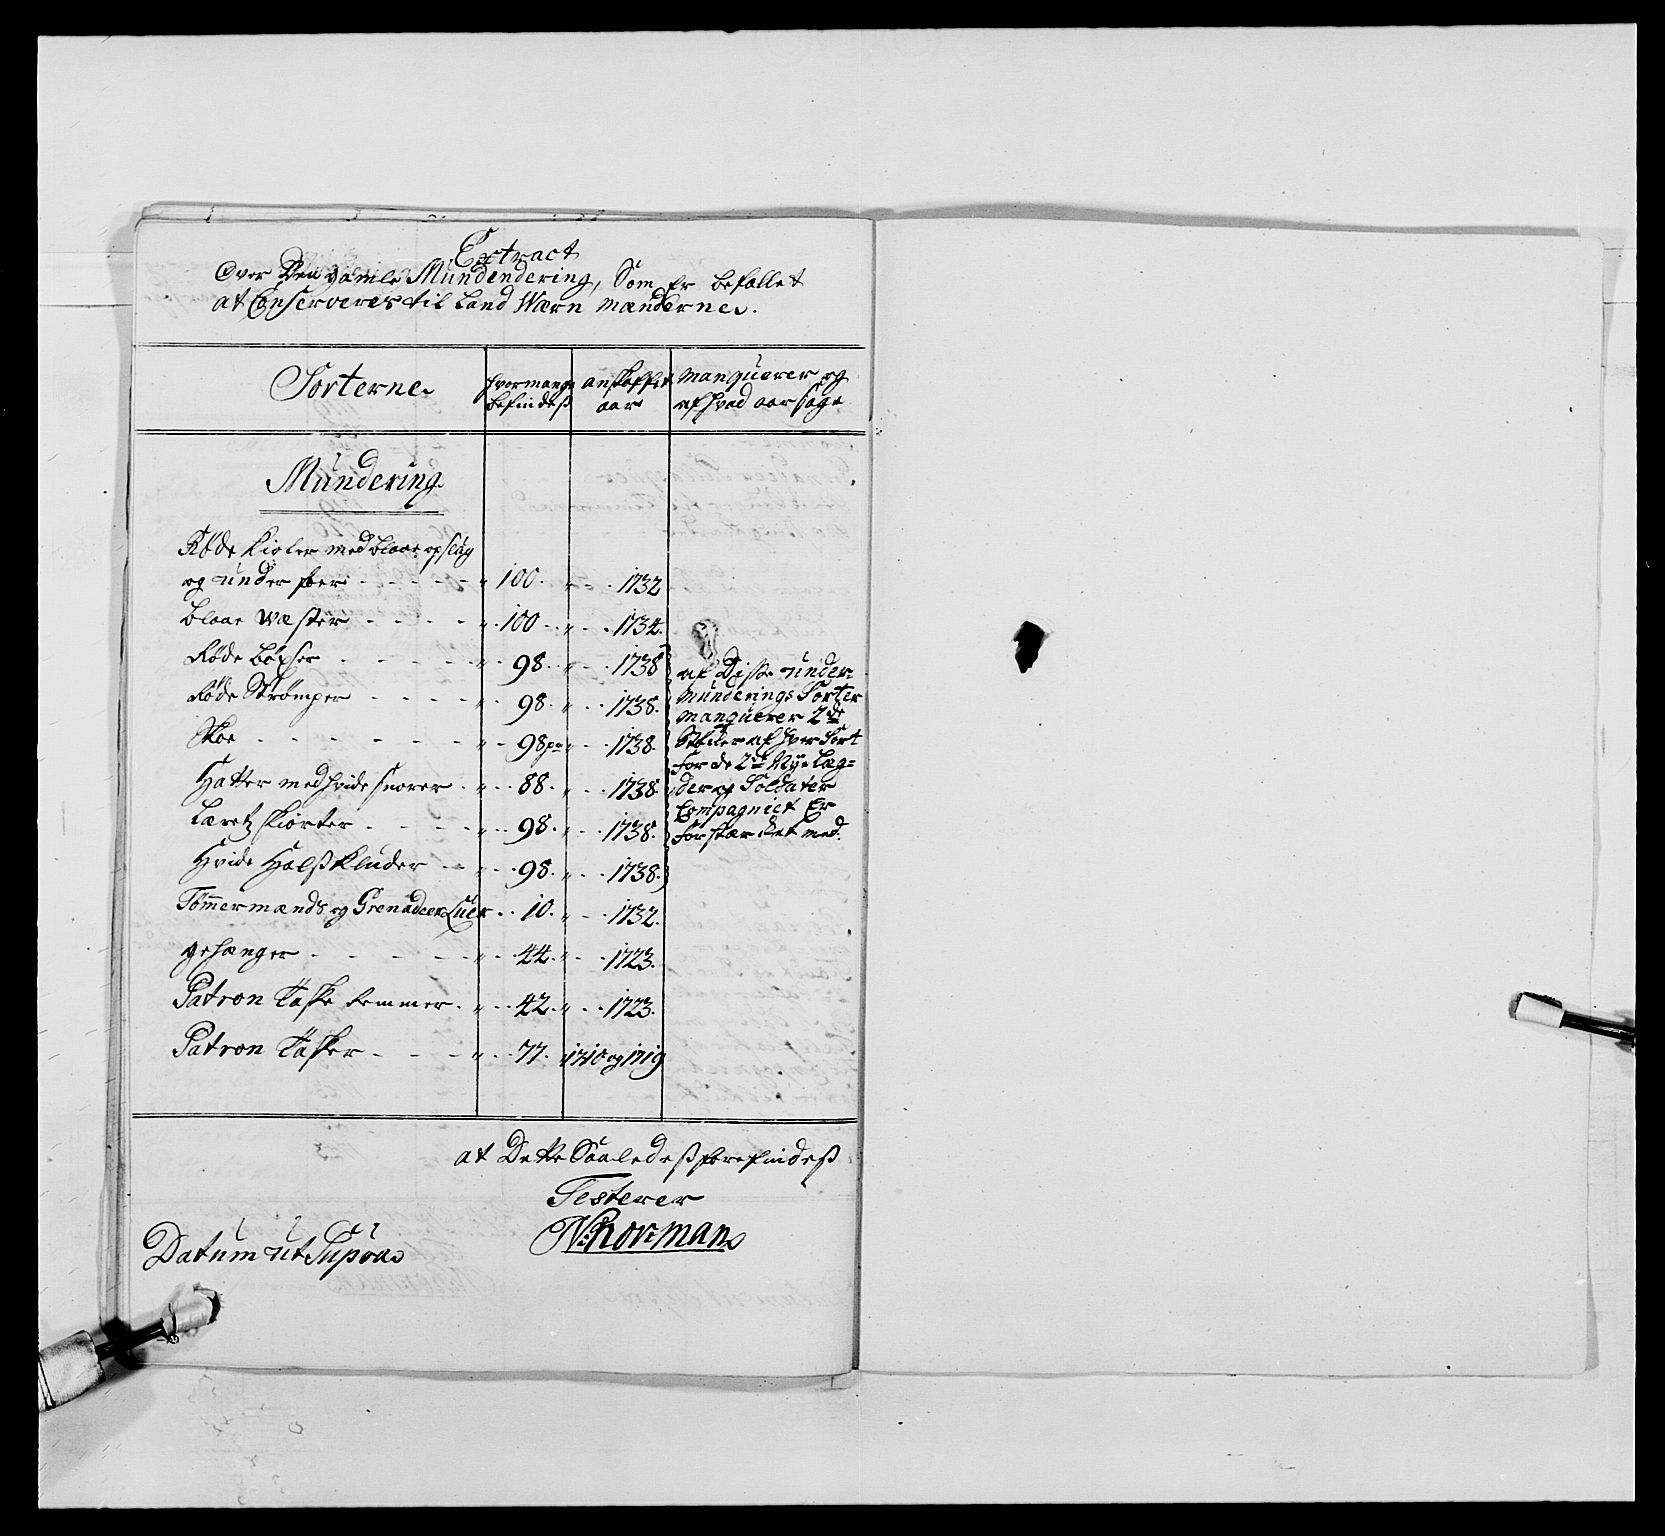 Extract
Over Den gamle Mundendering, Som Er befallet
at Conserveres til Land Wærn mænderne.
Sorterne
hvormange befindesß
anskaffet aar
manquerer og af hvad aarsage
Mundering
Røde Kioler med blaae opslag
og under foer - - - - - " 100. " - - 1732
blaae Wæster - - - - " 100 - " - - 1734.
Røde böxser - - - - " 98. " - - 1738
Røde Strømper - - - - " 98. " - - 1738.
Skoe - - - - - - " 98 pr " - - 1738.
Hatter med hvide snorer - " - 88. " - - 1738
Læretz skiorter - - - - " 98. " - - 1738.
Hvide Halß Kluder - - - 98. " - - 1738.
Tømmermænds og Grenadeer Luer - - 10. " - - 1732.
gehænger - - - - - " - 44. " - - 1723.
Patron Taske Remmer - " - 42. " - - 1723.
Patron Tasker - - - " - 77. 1710 og 1719
af Disse under-
munderings Sorter
manquerer 2de
Stöcker af hver Sort
for de 2de Nye Læg-
der og Soldater
Compagniet Er
forstærcket med.
at Dette Saaledeß forefindeß
Testerer
N: Norman
Datum ut Supra